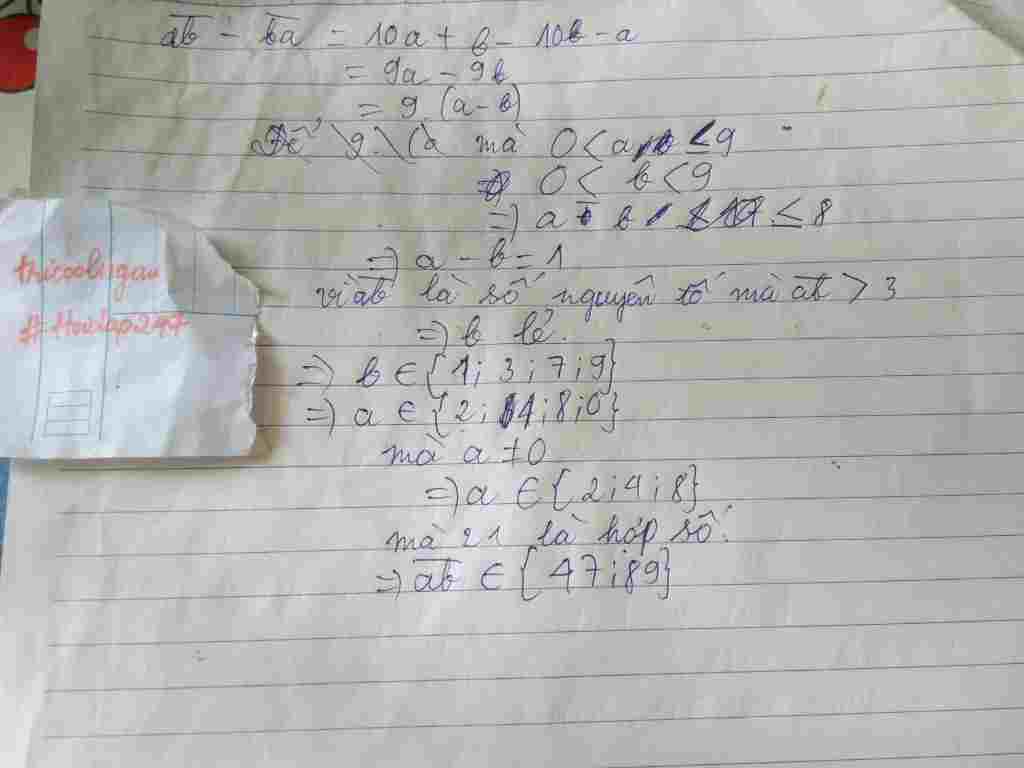 ab - ba = 10a + b - 10b - a
= 9a - 9b
= 9 (a - b)
Để mà 0 < a ≤ 9
0 < b < 9
=> a - b ≤ 8
=> a - b = 1
vì ab là số nguyên tố mà ab > 3
=> b lẻ.
=> b ∈ {1; 3; 7; 9}
=> a ∈ {2; 4; 8; 0}
mà a ≠ 0
=> a ∈ {2; 4; 8}
mà 21 là hợp số.
=> ab ∈ {47; 89}